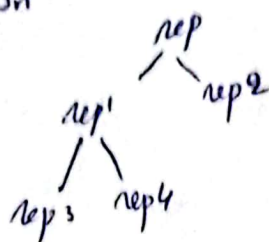 rep
rep1 rep2
rep3 rep4